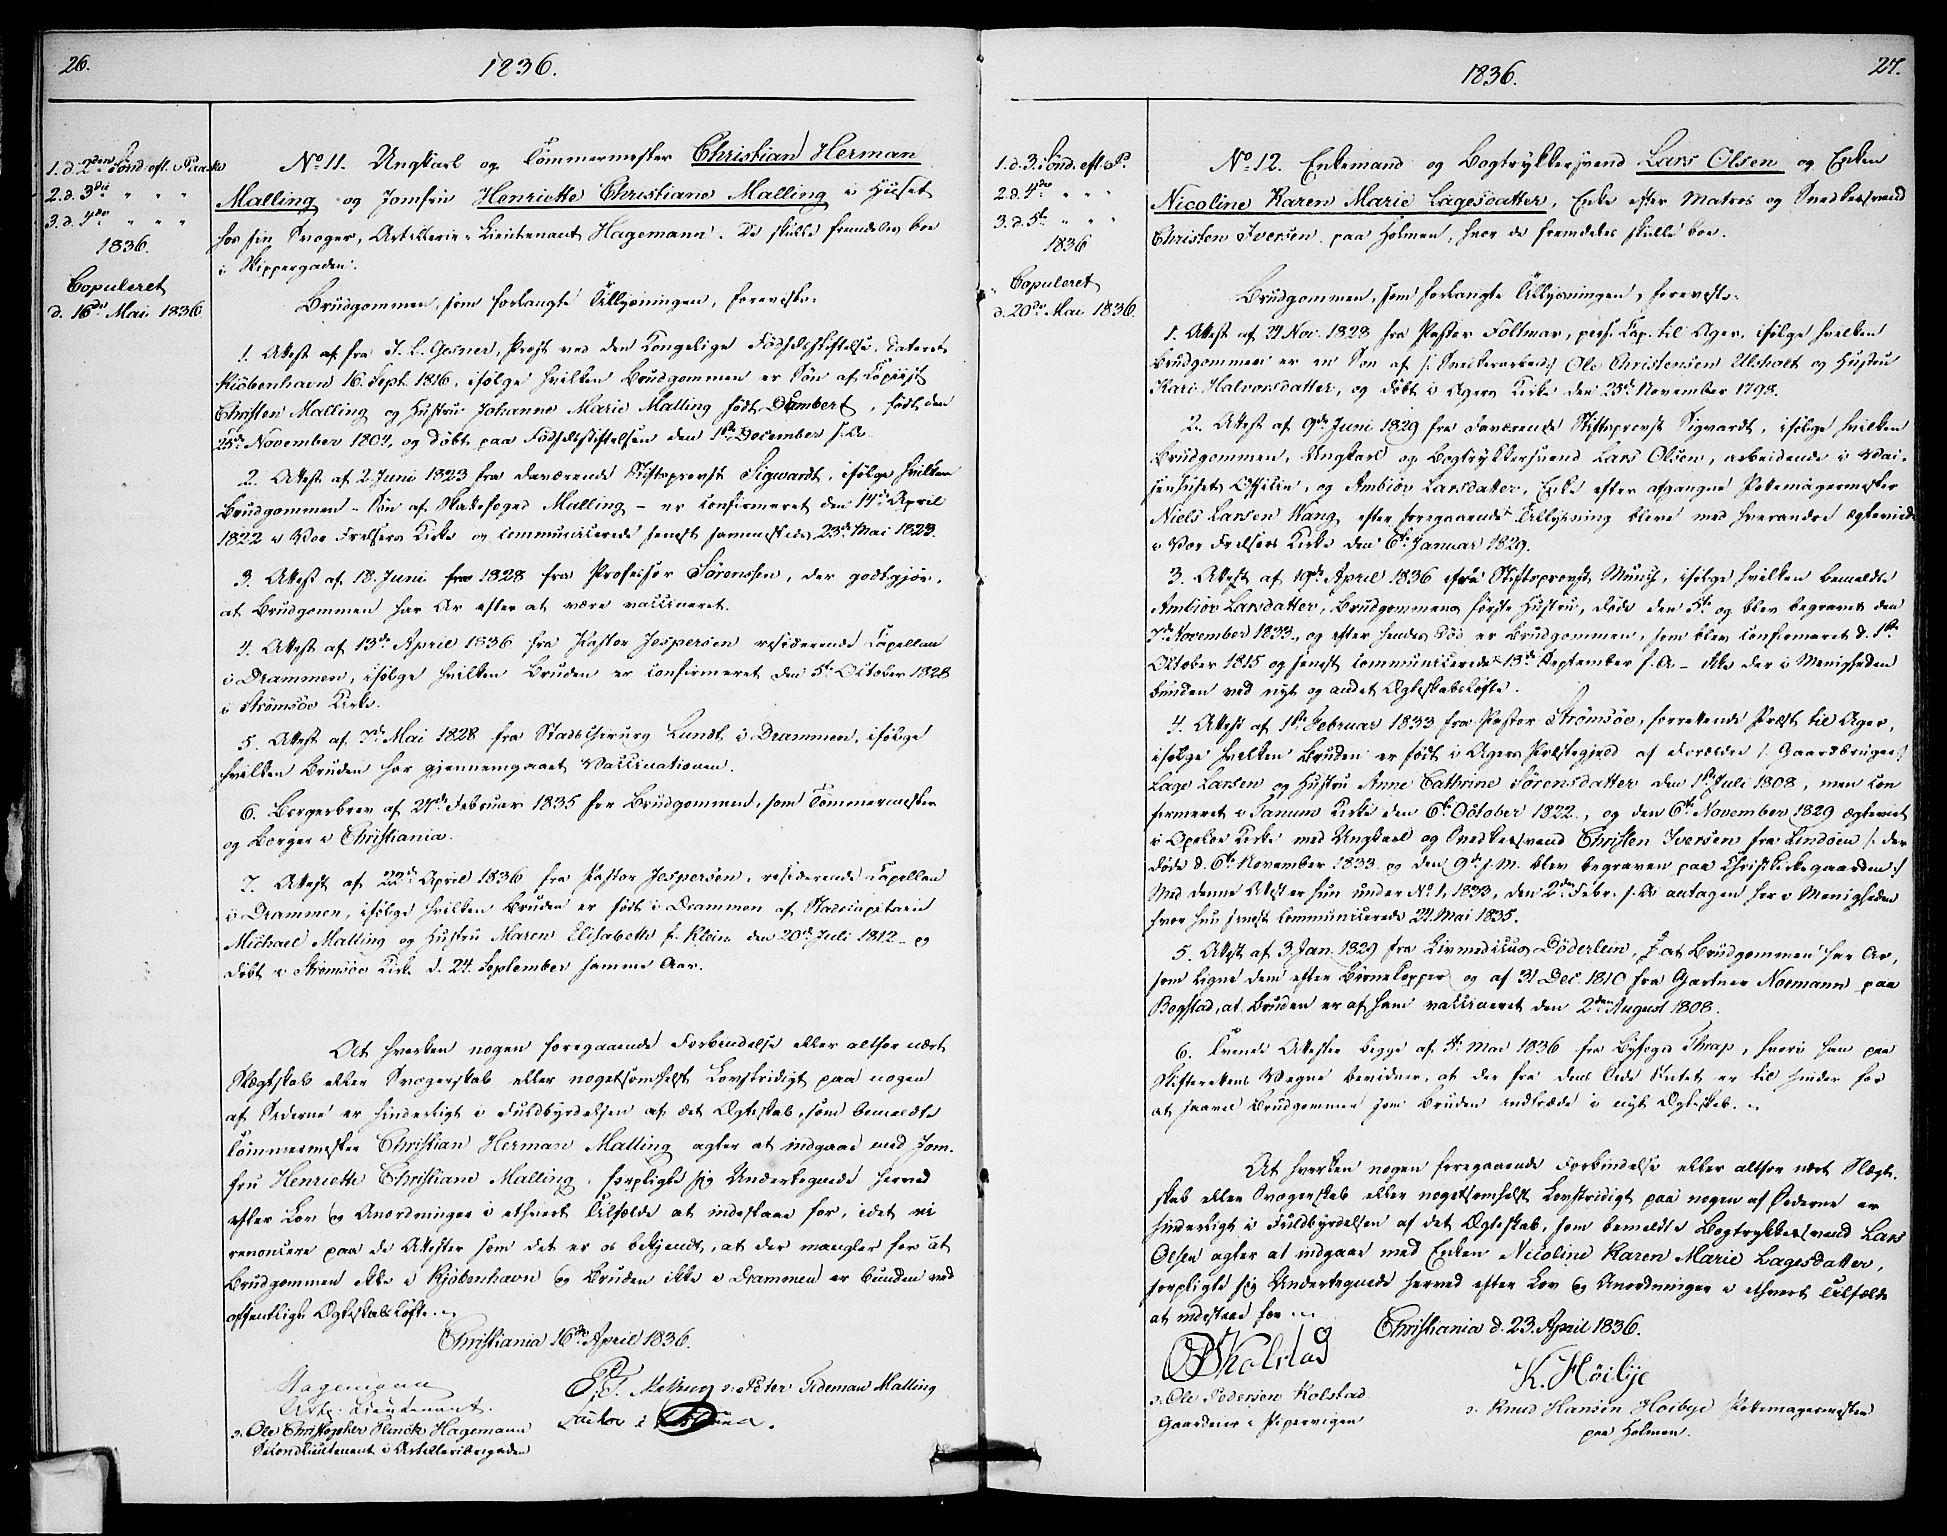 26.
1836.
1. d. 2den Sönd. eft. Paaske
2. d. 3die " " "
3. d. 4de " " "
1836.
Copuleret
d. 16de Mai 1836
No 11. Ungkarl og Tømmermester Christian Herman
Malling og Jomfru Henriette Christiane Malling i Huset
hos sin Svoger, Artillerie-Lieutenant Hagemann. De skulle fremdeles boe
i Skippergaden.
Brudgommen, som forlangte Tillysningen, foreviste:
1. Attest af fra J. L. Gesner, Præst ved den Kongelige Fødselsstiftelse, dateret
Kiöbenhavn 16. Sept. 1816, ifølge hvilken Brudgommen er Søn af Copiist
Christen Malling og Hustru Johanne Marie Malling født Dambert, født den
25de November 1807, og døbt paa Fødselsstiftelsen den 1ste December s. A.
2. Attest af 2. Juni 1823 fra daværende Stiftsprovst Sigwardt, ifølge hvilken
Brudgommen - Søn af Malling - er confirmeret den 14de April
1822 i Vor Frelsers Kirke og communicerede senest sammesteds 23de Mai 1823.
3. Attest af 18. Juni fra 1828 fra Professor Sörenssen, der godtgjør,
at Brudgommen har Ar efter at være vaccineret.
4. Attest af 13de April 1836 fra Pastor Jespersen residerende Capellan
i Drammen, ifølge hvilken Bruden er confirmeret den 5te October 1828
i Strømsöe Kirke.
5. Attest af 7de Mai 1828 fra Stadschirurg Lundt i Drammen, ifølge
hvilken Bruden har gjennemgaaet Vaccinationen.
6. Borgerbrev af 27de Februar 1835 for Brudgommen, som Tømmermester
og Borger i Christiania.
7. Attest af 22de April 1836 fra Pastor Jespersen, residerende Capellan
i Drammen, ifølge hvilken Bruden er født i Drammen af Stadscapitain
Michael Malling og Hustru Maren Elisabeth f. Klein den 20de Juli 1812 og
døbt i Strømsöe Kirke d. 24. September samme Aar.
At hverken nogen foregaaende Forbindelse eller altfor nært
Slægtskab eller Svogerskab eller nogetsomhelst Lovstridigt paa nogen
af Siderne er hinderligt i Fuldbyrdelsen af det Ægteskab, som bemeldte
Tømmermester Christian Herman Malling agter at indgaae med Jom-
fru Henriette Christiane Malling, forpligte sig Undertegnede herved
efter Lov og Anordninger i ethvert Tilfælde at indestaae for, idet vi
renoncere paa de Attester som det er os bekjendt, at der mangler for at
Brudgommen ikke i Kjöbenhavn og Bruden ikke i Drammen er bunden ved
offentligt Ægteskabsløfte.
Christiania 16de April 1836.
Hagemann
Art: Lieutenant.
o: Ole Christopher Flinck Hagemann
Secondlieutenant i Artilleribrigaden
P. T. Malling o: Peter Tideman Malling
1836.
27.
1. d. 3. Sönd. eft. P.
2. d. 4de " "
3. d. 5te " " "
1836
Copuleret
d. 20de Mai 1836.
No 12. Enkemand og Bogtrykkersvend Lars Olsen og Enken
Nicoline Karen Marie Lagesdatter, Enke efter Matros og Snedkersvend
Christen Iversen paa Holmen, hvor de fremdeles skulle boe.
Brudgommen, som forlangte Tillysningen, foreviste:
1. Attest af 27 Nov. 1828 fra Pastor Foltmar, pers. Cap. til Ager, ifølge hvilken
Brudgommen er en Søn af /: Snedkerarbeid:/ Ole Christensen Ulsholt og Hustru
Kari Halvorsdatter, og døbt i Agers Kirke den 25de November 1798.
2. Attest af 9de Juni 1829 fra daværende Stiftsprovst Sigvardt, ifølge hvilken
Brudgommen, Ungkarl og Bogtrykkersvend Lars Olsen, arbeidende i Wai-
senhusets Officin, og Ambiör Larsdatter, Enke efter afgangne Pottemagermester
Niels Larsen Wang efter foregaaende Tillysning bleve med hverandre ægteviede
i Vor Frelsers Kirke den 6te Januar 1829.
3. Attest af 19de April 1836 fra Stiftsprovst Munch, ifølge hvilken bemeldte
Ambiör Larsdatter, Brudgommens første Hustru, døde den 5te og blev begravet den
7de November 1833, og efter hendes Død er Brudgommen, som blev confirmeret d. 1ste
October 1815 og senest communicerede 13de September s. A. - ikke der i Menigheden
bunden ved nyt og andet Ægteskabsløfte.
4. Attest af 1ste Februar 1833 fra Pastor Strömsöe, forrettende Præst til Ager,
ifølge hvilken Bruden er født i Agers Præstegjeld af Forældre /: Gaardbruger:/
Lage Larsen og Hustru Anne Cathrine Sörensdatter den 1ste Juli 1808, men con-
firmeret i Tanum Kirke den 6te October 1822, og den 6te November 1829 ægteviet
i Opsloe Kirke med Ungkarl og Snedkersvend Christen Iversen fra Lindöen /: der
døde d. 6te November 1833 og den 9de s. M. blev begraven paa Christkirkegaarden :/
Med denne Attest er hun under No 1, 1833, den 2den Febr. s. A. antagen her i Menigheden
hvor hun senest communicerede 24 Mai 1835.
5. Attest af 3 Jan. 1829 fra Livmedicus Döderlein, at Brudgommen har Ar,
som ligne dem efter Børnekopper og af 31 Dec. 1810 fra Gartner Noemann paa
Bogstad, at Bruden er af ham vaccineret den 2den August 1808.
6. Tvende Attester begge af 5te Mai 1836 fra Byfoged Thrap, hvori han paa
Skifterettens Vegne bevidner, at der fra dens Side Intet er til Hinder for
at saavel Brudgommen som Bruden indtræde i nyt Ægteskab.
At hverken nogen foregaaende Forbindelse eller altfor nært Slægt-
skab eller Svogerskab eller nogetsomhelst Lovstridigt paa nogen af Siderne er
hinderligt i Fuldbyrdelsen af det Ægteskab, som bemeldte Bogtrykkersvend Lars
Olsen agter at indgaae med Enken Nicoline Karen Marie Lagesdatter,
forpligte sig Undertegnede herved efter Lov og Anordninger i ethvert Tilfælde
at indestaae for
Christiania d. 23. April 1836.
OPKolstad
o: Ole Pedersen Kolstad
Gaardeier i Pipervigen
K. Höibye
o: Knud Hansen Höibye Pottemagermester
paa Holmen.